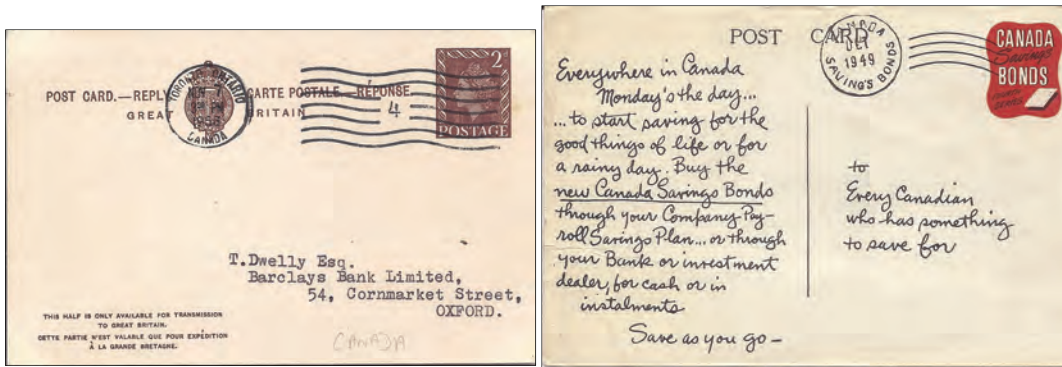 POST CARD.—REPLY
CARTE POSTALE—RÉPONSE
GREAT BRITAIN
TORONTO ONTARIO
PM
CANADA
4
2
POSTAGE
T.Dwelly Esq.
Barclays Bank Limited,
54, Cornmarket Street,
OXFORD.
THIS HALF IS ONLY AVAILABLE FOR TRANSMISSION
TO GREAT BRITAIN.
CETTE PARTIE N'EST VALABLE QUE POUR EXPÉDITION
À LA GRANDE BRETAGNE.
CANADA
POST CARD
CANADA
OCT
1949
SAVING'S BONDS
CANADA
Savings
BONDS
FOURTH
SERIES
Everywhere in Canada
Monday's the day...
...to start saving for the
good things of life or for
a rainy day. Buy the
new Canada Savings Bonds
through your Company Pay-
roll Savings Plan... or through
your Bank or investment
dealer, for cash or in
instalments
Save as you go—
to
Every Canadian
who has something
to save for